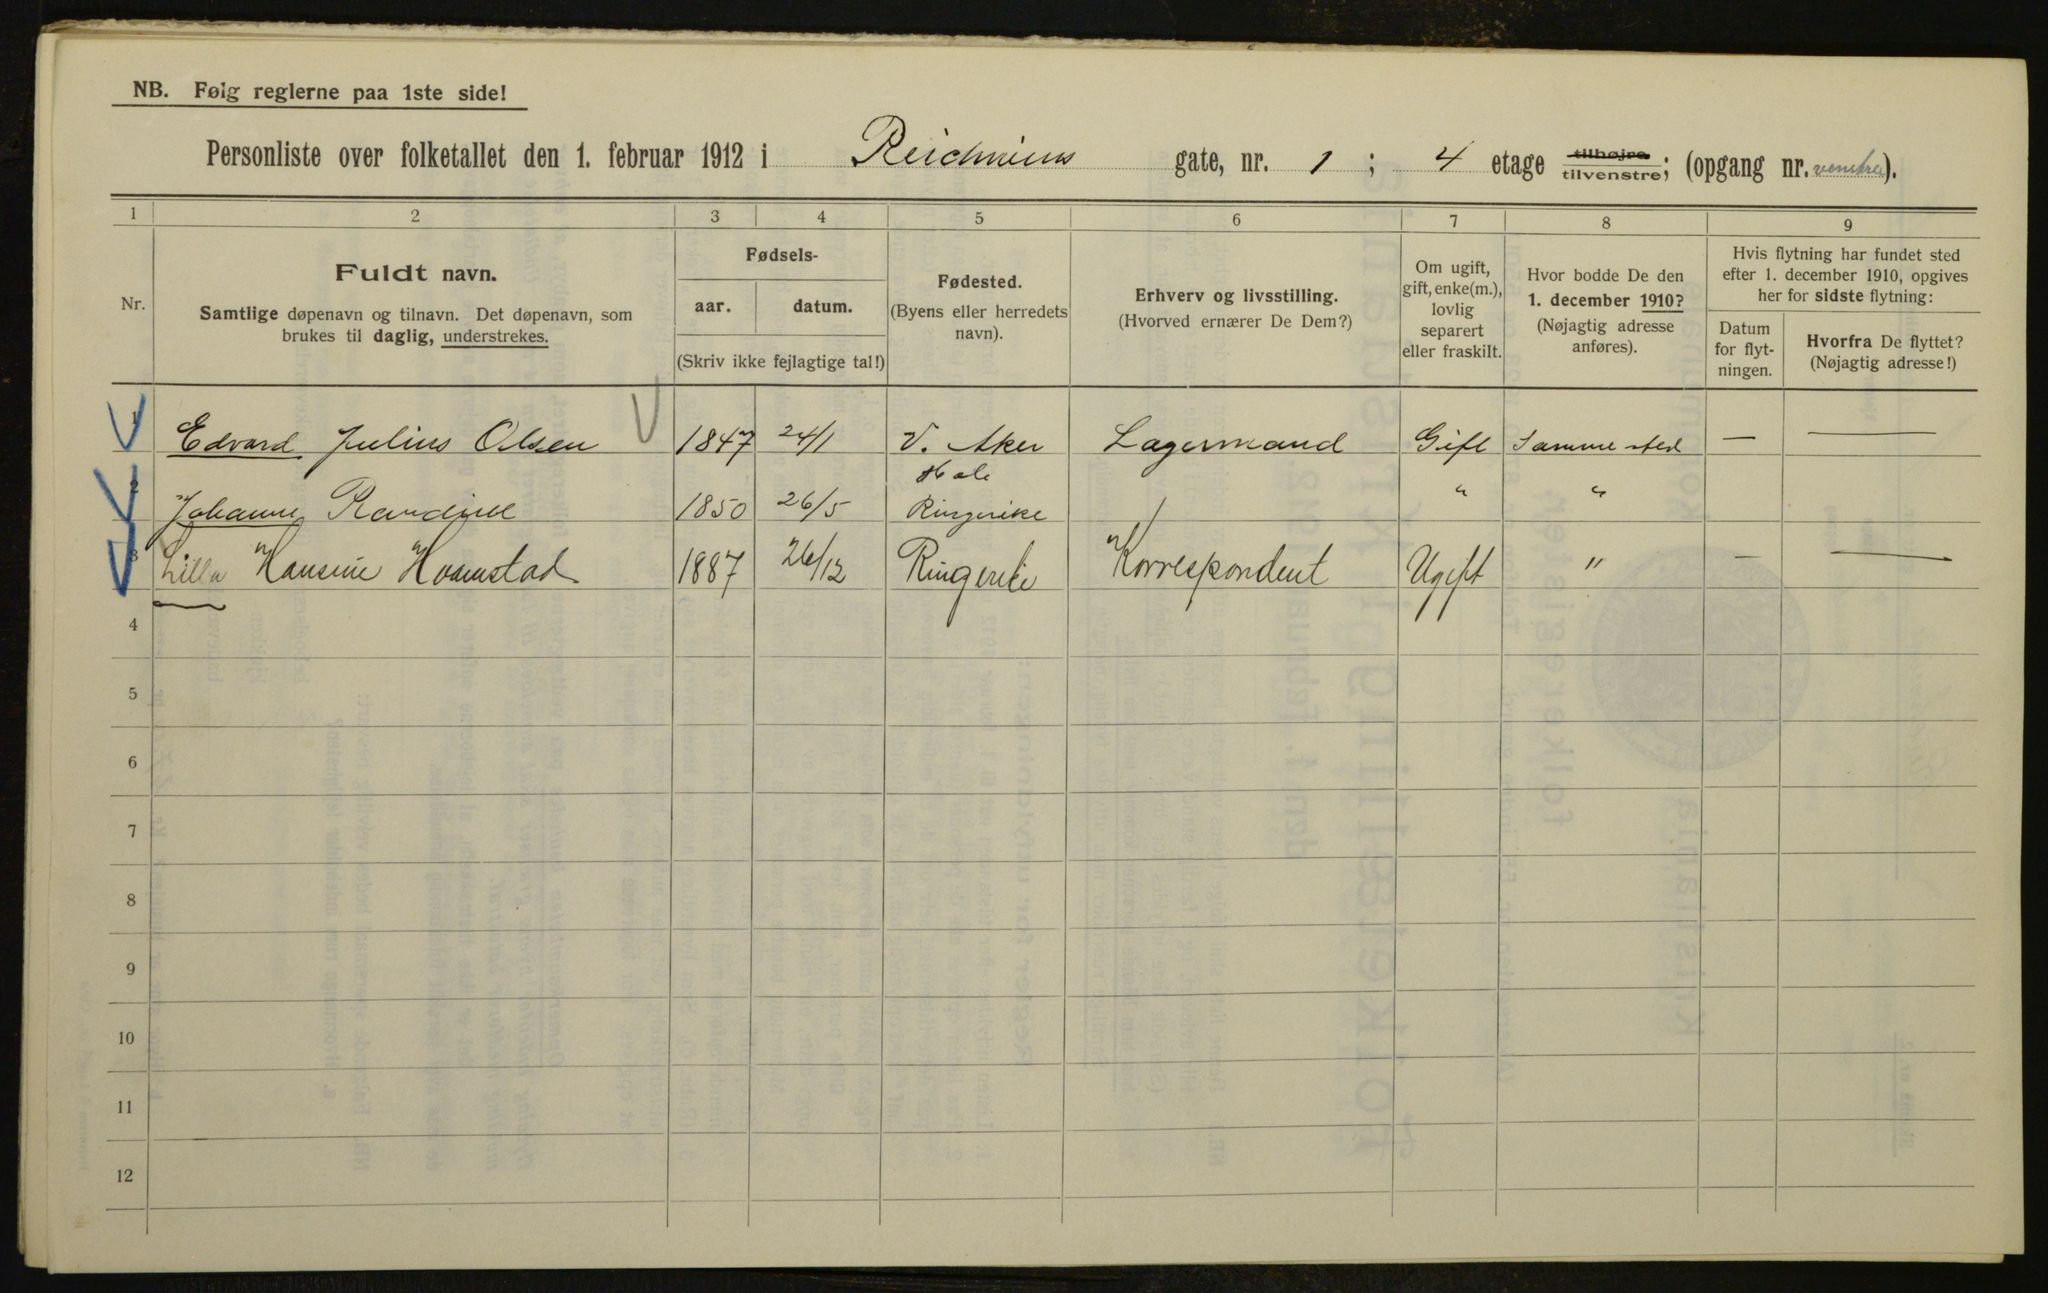 NB. Følg reglerne paa 1ste side!
Personliste over folketallet den 1. februar 1912 i Reichweins gate, nr. 1 ; 4 etage tilhøjre tilvenstre; (opgang nr. venstre).
1 2 3 4 5 6 7 8 9
Nr.
Fuldt navn.
Samtlige døpenavn og tilnavn. Det døpenavn, som
brukes til daglig, understrekes.
Fødsels-
aar. datum.
(Skriv ikke fejlagtige tal!)
Fødested.
(Byens eller herredets
navn).
Erhverv og livsstilling.
(Hvorved ernærer De Dem?)
Om ugift,
gift, enke(m.),
lovlig
separert
eller fraskilt.
Hvor bodde De den
1. december 1910?
(Nøjagtig adresse
anføres).
Hvis flytning har fundet sted
efter 1. december 1910, opgives
her for sidste flytning:
Datum
for flyt-
ningen.
Hvorfra De flyttet?
(Nøjagtig adresse!)
1 Edvard Julius Olsen 1847 24/1 V. Aker Lagermand Gift Samme sted — —
Hole
2 Johanne Randine 1850 26/5 Ringerike " "
3 Lilla Hansine Hvamstad 1887 26/12 Ringerike Korrespondent Ugift " — —
4
5
6
7
8
9
10
11
12